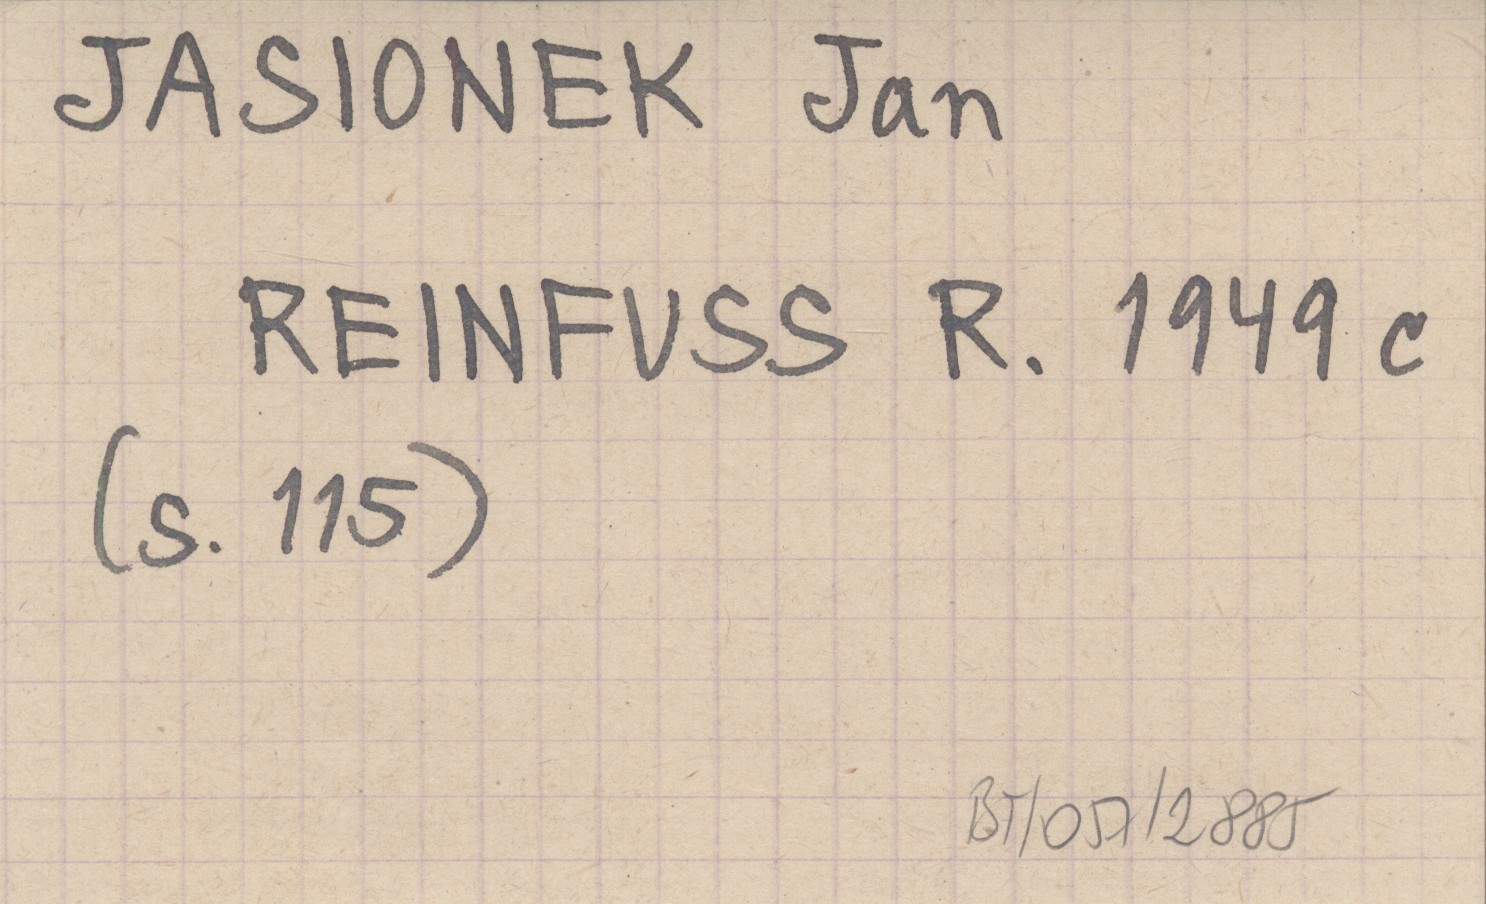 JASIONEK Jan
REINFUSS R. 1949 c
(s. 115)
BT/057/2885